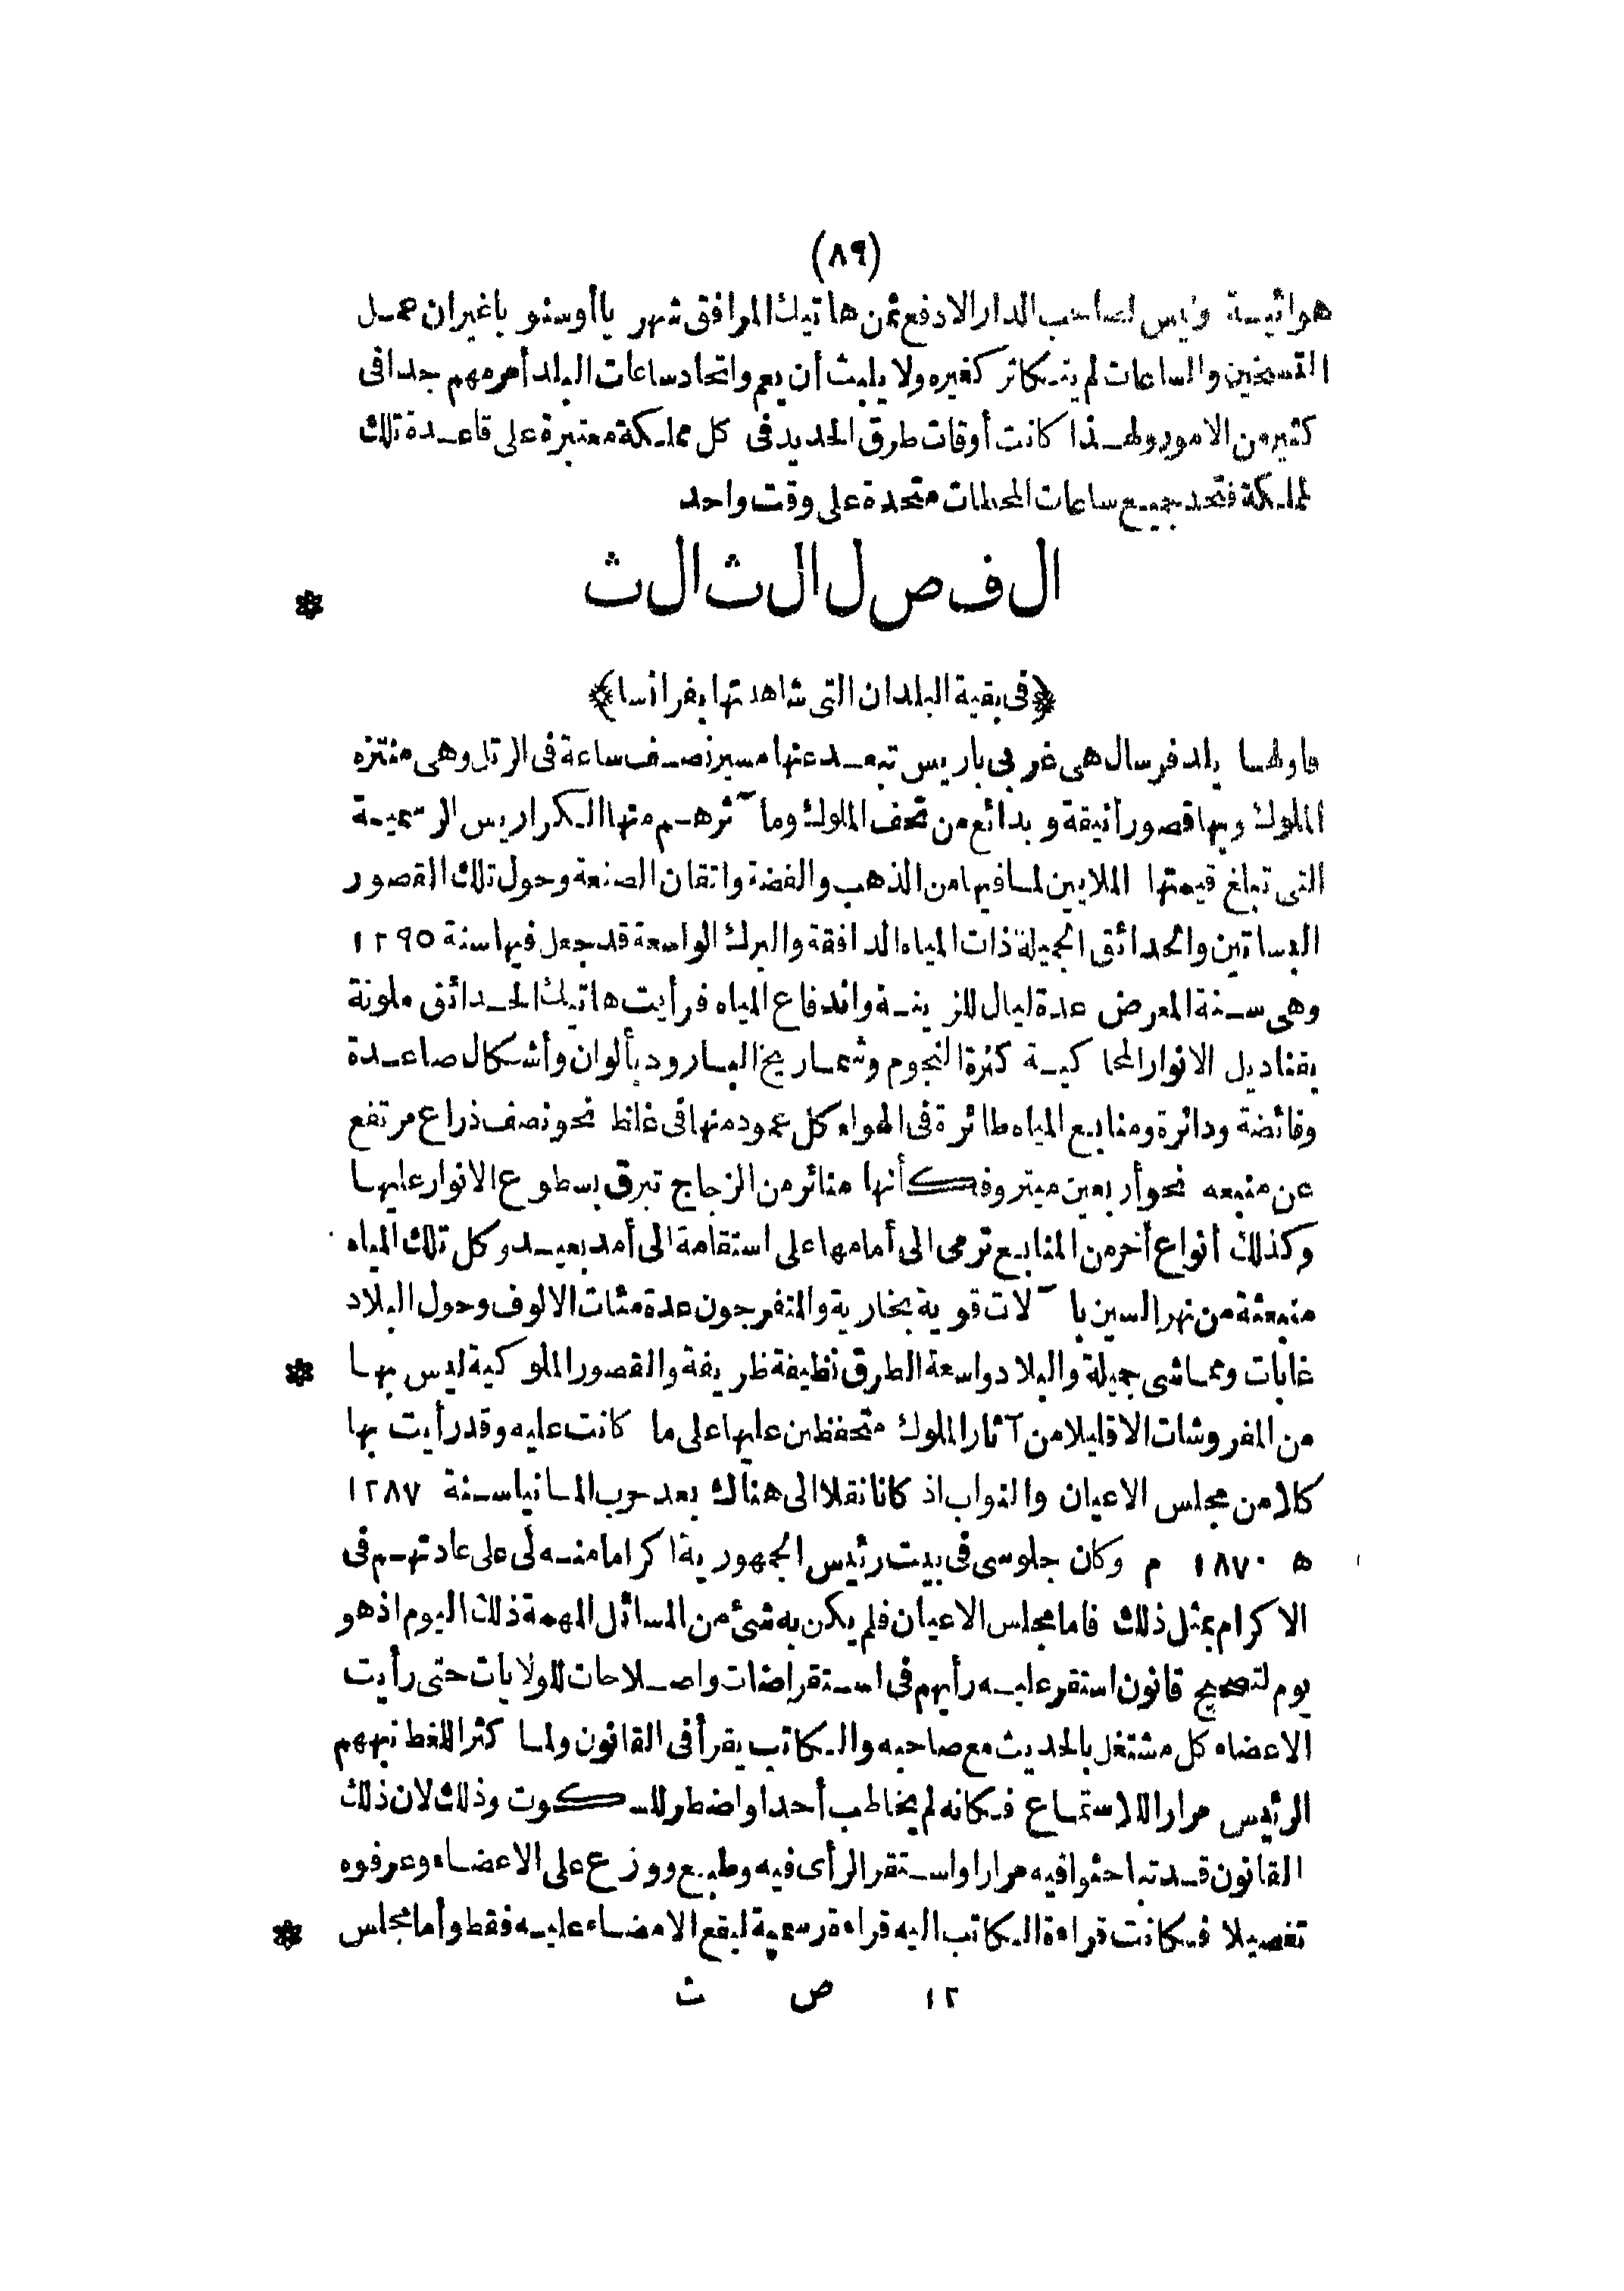 (٨٩)
هوائيـة وليس لصاحب الدار الا دفع ثمن هاتيك المرافق شهريا أو سنويا غير ان عمـل
التسخين والساعات لم يتـكاثر كغيره ولا يلبث أن يعم واتحاد ساعات البلد أمر مهم جدا فى
كثير من الامور ولهـذا كانت أوقات طرق الحديد فى كل مملـكة معتبرة على قاعـدة تلك
لمملـكة فتجد جميـع ساعات المحطات متحدة على وقت واحد
الفصل الثالث *
﴿فى بقية البلدان التى شاهدتها بفرانسا﴾
فاولهـا بلد فرسال هى غربى باريس تبعـد عنها مسير نصـف ساعة فى الرتل وهى منتزه
الملوك وبها قصور أنيقة وبدائع من تحف الملوك ومآثرهـم منها الـكراريس الرسميـة
التى تبلغ قيمتها الملايين لمـا فيها من الذهب والفضة واتقان الصنعة وحول تلك القصور
البساتين والحدائق الجميلة ذات المياه الدافقة والبرك الواسعة قد جعل فيها سنة ١٢٩٥
وهى سـنة المعرض عدة ليال للزينـة واندفاع المياه فرأيت هاتيـك الحـدائق ملونة
بقناديل الانوار المحاكيـة كثرة النجوم وشمـاريخ البـارود بألوان وأشـكال صاعـدة
وفائضة ودائرة ومنابـع المياه طائرة فى الهواء كل عمود منها فى غلظ نحو نصف ذراع مرتفع
عن منبعه نحو أربعين ميترو فكأنها منائر من الزجاج تبرق بسطوع الانوار عليهـا
وكذلك أنواع أخر من المنابـع ترمى الى أمامها على استقامة الى أمد بعيـد وكل تلك المياه
منبعثة من نهر السين بآلات قوية بخارية والمتفرجون عدة مئات الالوف وحول البلاد
غابات وممـاشى جميلة والبلاد واسعة الطرق نظيفة ظريفة والقصور الملوكية ليس بهـا *
من المفروشات الا قليلا من آثار الملوك متحفظين عليها على ما كانت عليه وقد رأيت بها
كلا من مجلس الاعيان والنواب اذ كانا نقلا الى هناك بعد حرب المـانيا سـنة ١٢٨٧
ه ١٨٧٠ م وكان جلوسى فى بيت رئيس الجمهورية اكراما منـه لى على عادتهـم فى
الاكرام بمثل ذلك فاما مجلس الاعيان فلم يكن به شئ من المسائل المهمة ذلك اليوم اذ هو
يوم لتصحيح قانون استقر عليـه رأيهم فى اسـتقراضات واصـلاحات للولايات حتى رأيت
الاعضاء كل مشتغل بالحديث مع صاحبه والـكاتب يقرأ فى القانون ولمـا كثر اللغط نبههم
الرئيس مرارا للاستمـاع فـكانه لم يخاطب أحدا واضطر للسـكوت وذلك لان ذلك
القانون قـد تباحثوا فيه مرارا واسـتقر الرأى فيه وطبـع ووزع على الاعضـاء وعرفوه
تفصيلا فـكانت قراءة الـكاتب اليه قراءة رسمية ليقع الامضـاء عليـه فقط وأما مجلس *
١٢ ص ث